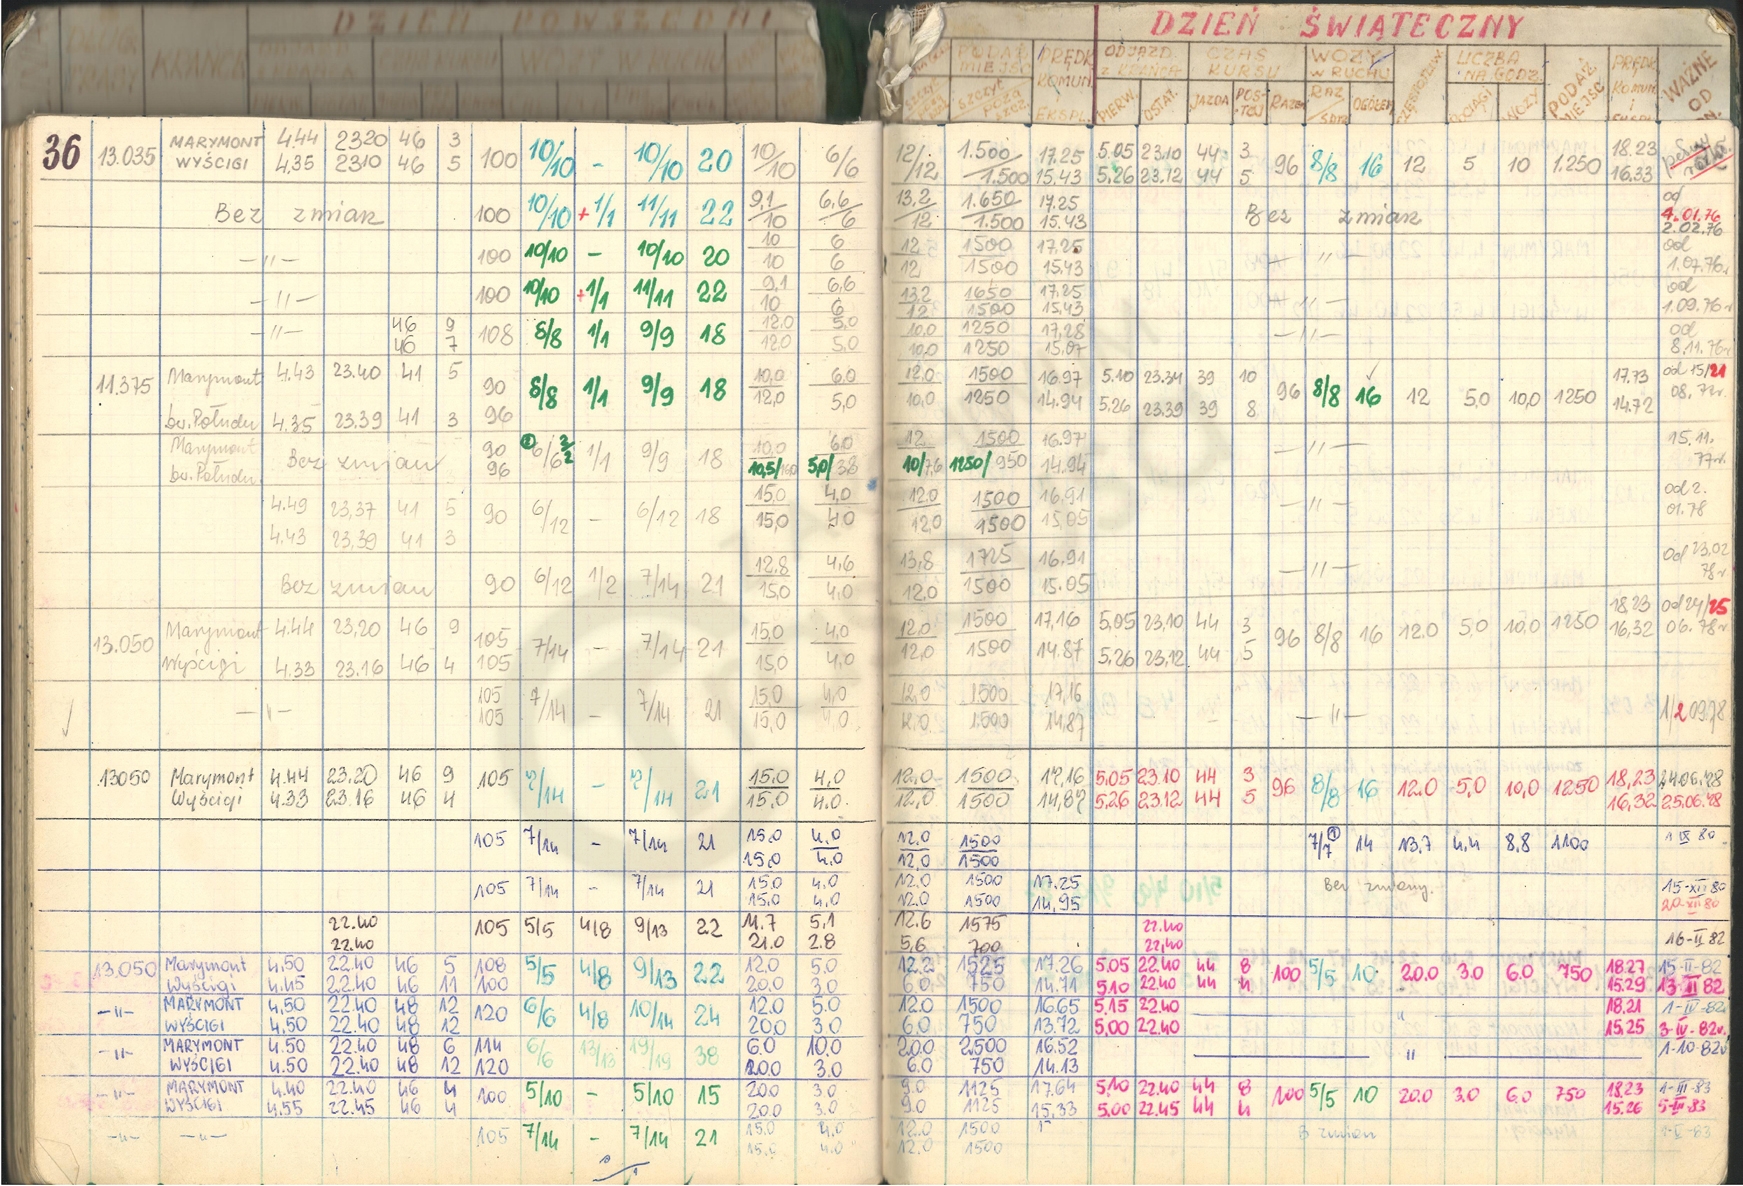 DZIEŃ POWSZEDNI
DZIEŃ ŚWIĄTECZNY
KRAŃCE
PODAŻ MIEJSC PRĘDK. KOMUN. ODJAZD Z KRAŃCA CZAS KURSU WOZY W RUCHU LICZBA NA GODZ. PODAŻ MIEJSC PRĘDK. KOMUN. WAŻNE OD
EKSPL. PIERW. OSTAT. JAZDA POS-TÓJ RAZEM OGÓŁEM POCIĄGI WOZY
36 13.035 MARYMONT 4.44 2320 46 3 100 10/10 - 10/10 20 10/10 6/6 12/12 1.500/1.500 17.25 5.05 23.10 44 3 96 8/8 16 12 5 10 1.250 18.23
WYŚCIGI 4.35 2310 46 5 15.43 5.26 23.12 44 5 16.33
Bez zmian 100 10/10 +1/1 11/11 22 9,1 6,6 13,2 1.650 17.25 Bez zmian od 4.01.76
10 6 12 1.500 15.43 2.02.76
-"- 100 10/10 - 10/10 20 10 6 12 1500 17.25 -"- od
10 6 12 1500 15.43 1.07.76r
-"- 100 10/10 +1/1 11/11 22 9,1 6,6 13,2 1650 17.25 -"- od
10 6 12 1500 15.43 1.09.76r
-"- 46 9 108 8/8 1/1 9/9 18 12.0 5,0 10,0 1250 17,28 -"- od
46 7 12,0 5,0 10,0 1250 15.07 8.11.76r
11.375 Marymont 4.43 23.40 41 5 90 8/8 1/1 9/9 18 10,0 6.0 12.0 1500 16.97 5.10 23.34 39 10 96 8/8 16 12 5,0 10,0 1250 17.73 od 15/21
bw. Połudn. 4.35 23.39 41 3 96 12,0 5,0 10,0 1250 14.94 5,26 23.39 39 8 14.72 08.77r.
Marymont Bez zmian 90 6/6 2/2 1/1 9/9 18 10,0 6.0 12 1500 16.97 -"- 15.11.
bw. Połudn. 96 10,5/ 5,0/3.8 10/7,6 1250/950 14.94 77r.
4.49 23,37 41 5 90 6/12 - 6/12 18 15,0 4,0 12,0 1500 16.91 -"- od 2.
4.43 23,39 41 3 15,0 4,0 12,0 1500 15,05 01.78
Bez zmian 90 6/12 1/2 7/14 21 12.8 4,6 13,8 1725 16.91 -"- od 23,02
15,0 4,0 12,0 1500 15.05 78r.
13.050 Marymont 4.44 23,20 46 9 105 7/14 - 7/14 21 15,0 4,0 12.0 1500 17,16 5,05 23,10 44 3 96 8/8 16 12.0 5,0 10,0 1250 18 23 od 24/25
Wyścigi 4.33 23.16 46 4 105 15,0 4,0 12,0 1500 14.87 5,26 23,12 44 5 16,32 06.78r
-"- 105 7/14 - 7/14 21 15,0 4,0 12,0 1500 17,16 -"- 1/2 09.78
105 15,0 4,0 12.0 1500 14,87
13050 Marymont 4.44 23.20 46 9 105 7/14 - 7/14 21 15.0 4,0 12,0 1500 17,16 5.05 23.10 44 3 96 8/8 16 12.0 5,0 10,0 1250 18,23 24.06.78
Wyścigi 4.33 23.16 46 4 15,0 4.0 12,0 1500 14,87 5,26 23.12 44 5 16,32 25.06.78
105 7/14 - 7/14 21 15.0 4.0 12.0 1500 7/7 14 13,7 4,4 8,8 1100 1 IX 80
15.0 4,0 12.0 1500
105 7/14 - 7/14 21 15.0 4,0 12.0 1500 17.25 Bez zmiany. 15-XII 80
15.0 4,0 12.0 1500 14,95 20-XII-80
22.40 105 5/5 4/8 9/13 22 11.7 5,1 12.6 1575 22.40
22.40 21.0 2.8 5,6 700 22,40 16-II 82
13.050 Marymont 4.50 22.40 46 5 108 5/5 4/8 9/13 22 12.0 5.0 12.2 1525 17.26 5.05 22.40 44 8 100 5/5 10 20.0 3.0 6.0 750 18.27 15-II-82
Wyścigi 4.45 22.40 46 11 100 20.0 3.0 6.0 750 14.71 5.10 22.40 44 4 15.29 13 II 82
-"- MARYMONT 4,50 22.40 48 12 120 6/6 4/8 10/14 24 12.0 5.0 12.0 1500 16.65 5,15 22.40 " 18.21 1-IV-82
WYŚCIGI 4,50 22.40 48 12 20.0 3.0 6.0 750 13.72 5,00 22.40 15.25 3-IV-82r.
-"- MARYMONT 4.50 22.40 48 6 114 6/6 13/13 19/19 38 6.0 10,0 20.0 2,500 16.52 " 1-10-82r
WYŚCIGI 4.50 22.40 48 12 120 20.0 3.0 6.0 750 14.13
-"- MARYMONT 4.40 22.40 46 4 100 5/10 - 5/10 15 20.0 3.0 9.0 1125 17.64 5,10 22.40 44 8 100 5/5 10 20.0 3.0 6.0 750 18.23 1-III-83
WYŚCIGI 4.55 22.45 46 4 20.0 3.0 9.0 1125 15,33 5.00 22.45 44 4 15.26 5-III-83
-"- -"- 105 7/14 - 7/14 21 15.0 4.0 12.0 1500 B zmian 1-V-83
15.0 4.0 12.0 1500